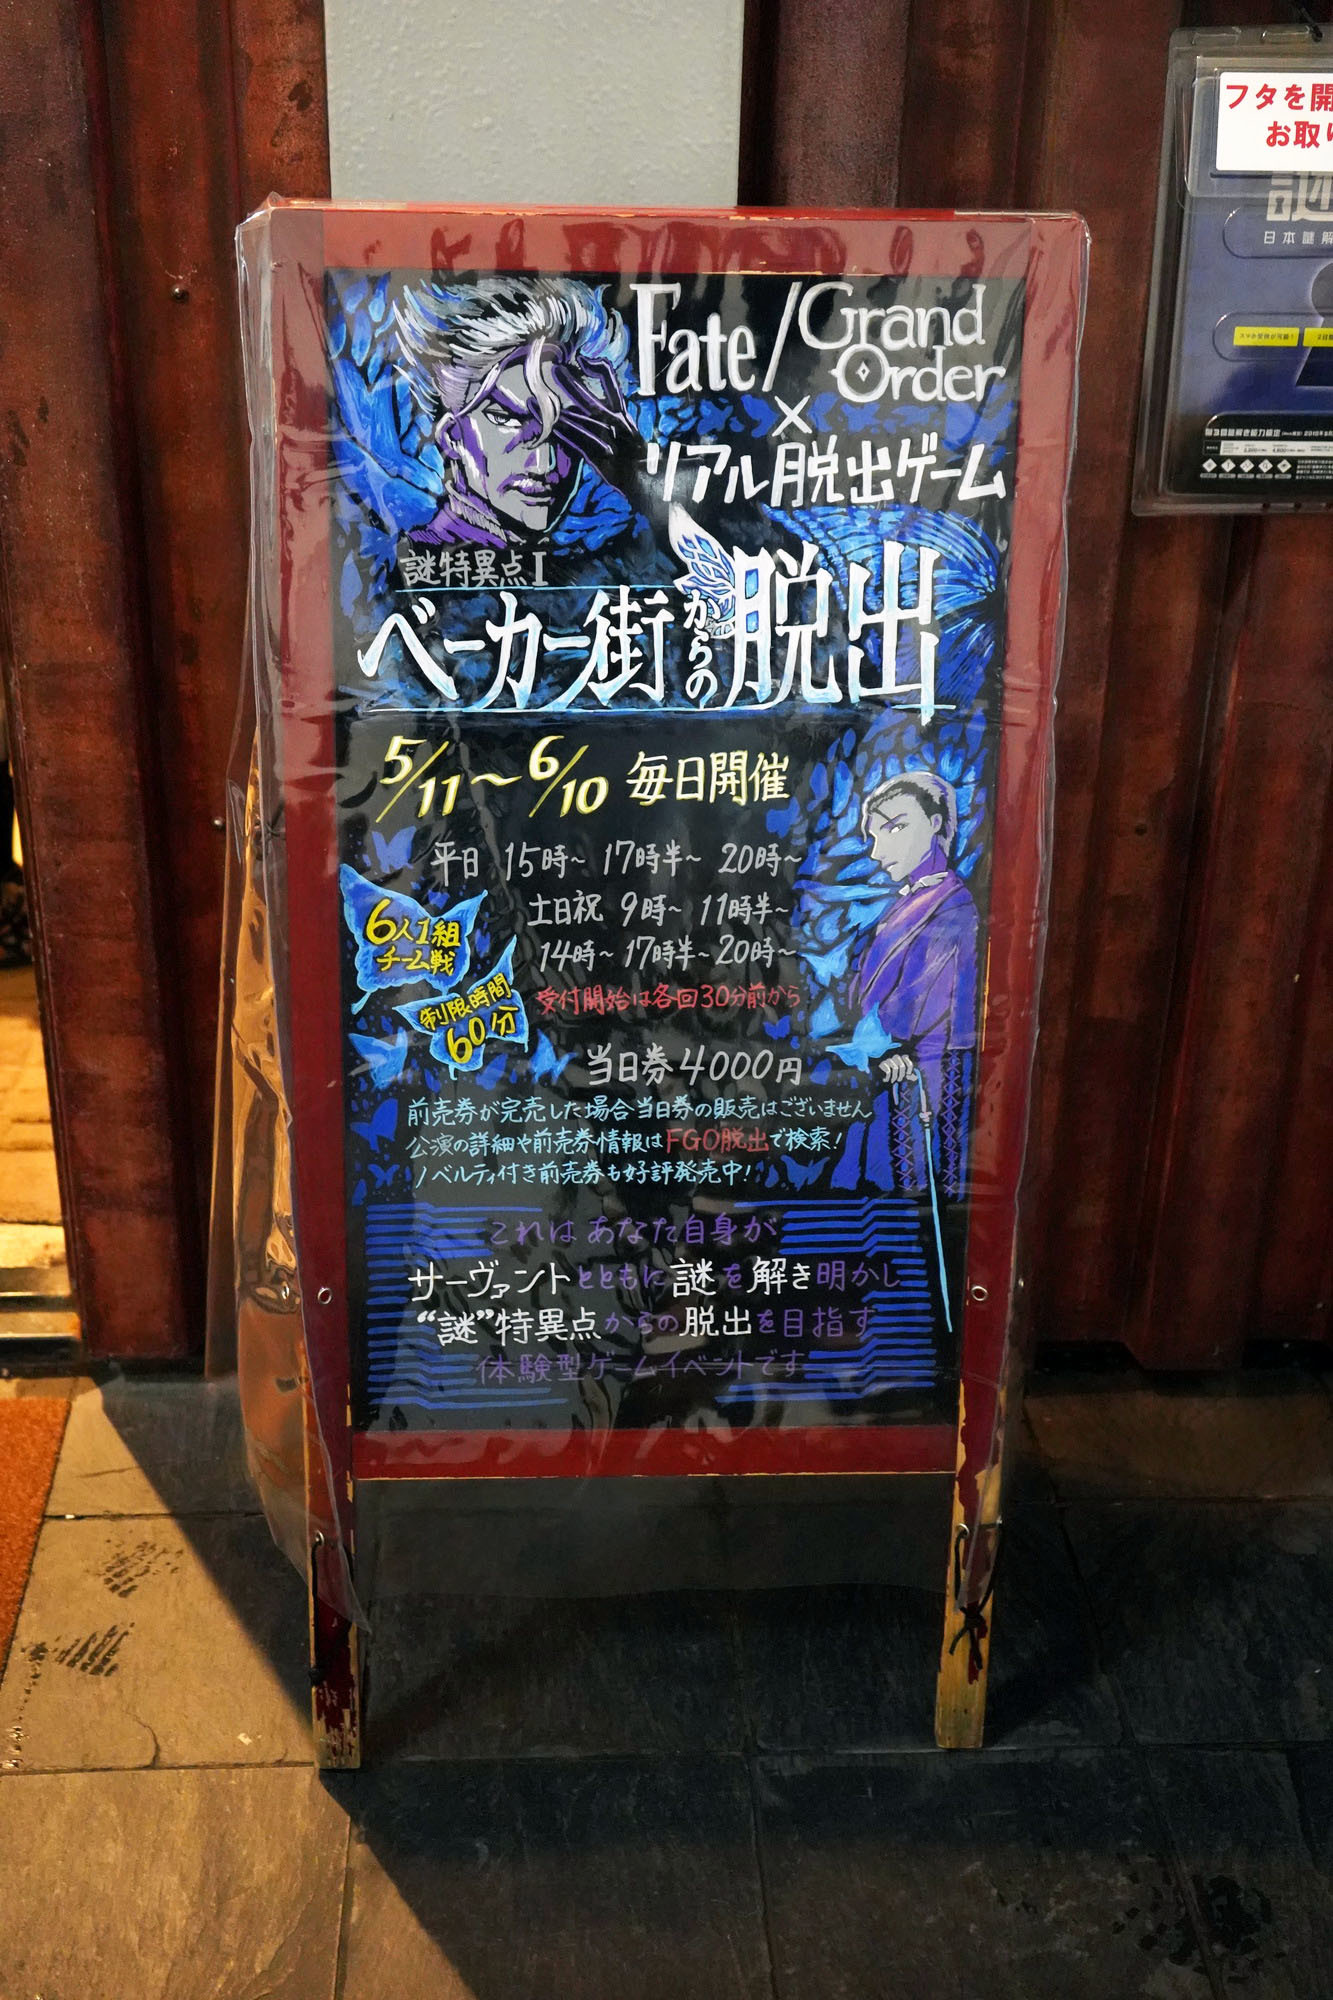 Fate/Grand Order
×
リアル脱出ゲーム
謎特異点I
ベーカー街からの脱出
5/11～6/10 毎日開催
平日 15時～ 17時半～ 20時～
土日祝 9時～ 11時半～
14時～ 17時半～ 20時～
6人1組
チーム戦
制限時間
60分
受付開始は各回30分前から
当日券 4000円
前売券が完売した場合当日券の販売はございません
公演の詳細や前売券情報はFGO脱出で検索!
ノベルティ付き前売券も好評発売中!
これは あなた自身が
サーヴァントとともに謎を解き明かし
“謎”特異点からの脱出を目指す
体験型ゲームイベントです
フタを開
お取り
謎
日本謎解